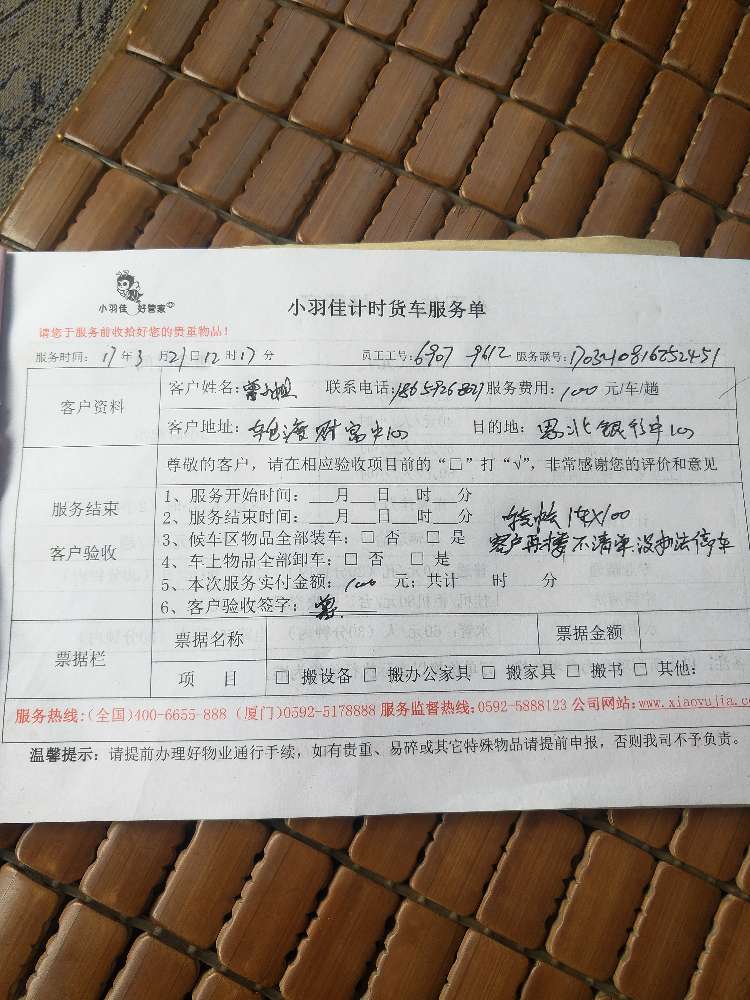 小羽佳 好管家
小羽佳计时货车服务单
请您于服务前收拾好您的贵重物品！
服务时间：17年3月21日12时17分 员工工号：6907 9612 服务联号：
客户资料
客户姓名：曾小姐 联系电话： 服务费用：100元/车/趟
客户地址：海财富中心 目的地：银行中心
服务结束
客户验收
尊敬的客户，请在相应验收项目前的“□”打“√”，非常感谢您的评价和意见
1、服务开始时间：___月___日___时___分
2、服务结束时间：___月___日___时___分 1车X100
3、候车区物品全部装车：□ 否 □ 是 客户再楼不清单没办法停车
4、车上物品全部卸车：□ 否 □ 是
5、本次服务实付金额：100元；共计 时 分
6、客户验收签字：曾
票据栏
票据名称 票据金额
项 目 □ 搬设备 □ 搬办公家具 □ 搬家具 □ 搬书 □ 其他：
服务热线：(全国)400-6655-888 (厦门)0592-5178888 服务监督热线：0592-5888123 公司网站：www.xiaoyujia.co
温馨提示：请提前办理好物业通行手续，如有贵重、易碎或其它特殊物品请提前申报，否则我司不予负责。